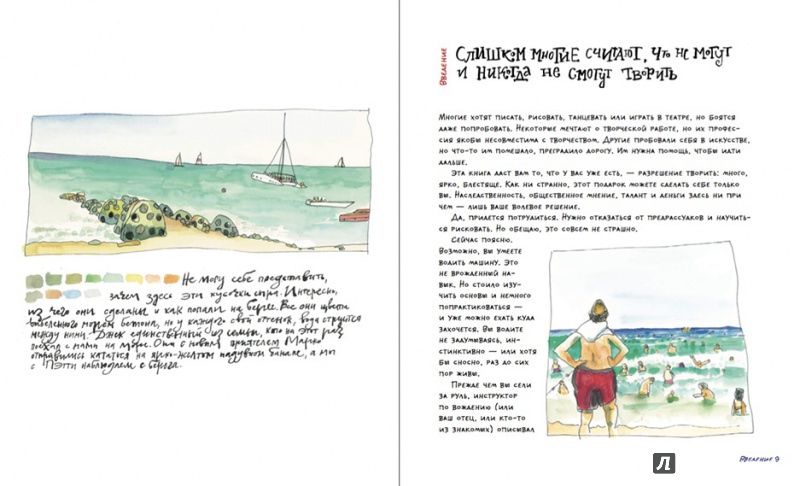 Не могу себе представить,
зачем здесь эти кусочки сыра. Интересно,
из чего они сделаны и как попали на берег. Все они цвета
выбеленного морем бетона, но у каждого свой оттенок, вода струится
между ними. Джек единственный из семьи, кто на этот раз
поехал с нами на море. Они с новым приятелем Марко
отправились кататься на ярко-желтом надувном банане, а мы
с Пэтти наблюдаем с берега.
ВВЕДЕНИЕ
СЛИШКОМ МНОГИЕ СЧИТАЮТ, ЧТО НЕ МОГУТ
И НИКОГДА НЕ СМОГУТ ТВОРИТЬ
Многие хотят писать, рисовать, танцевать или играть в театре, но боятся
даже попробовать. Некоторые мечтают о творческой работе, но их профес-
сия якобы несовместима с творчеством. Другие пробовали себя в искусстве,
но что-то им помешало, преградило дорогу. Им нужна помощь, чтобы идти
дальше.
Эта книга даст вам то, что у вас уже есть, — разрешение творить: много,
ярко, блестяще. Как ни странно, этот подарок можете сделать себе только
вы. Наследственность, общественное мнение, талант и деньги здесь ни при
чем — лишь ваше волевое решение.
Да, придется потрудиться. Нужно отказаться от предрассудков и научить-
ся рисковать. Но обещаю, это совсем не страшно.
Сейчас поясню.
Возможно, вы умеете
водить машину. Это
не врожденный на-
вык. Но стоило изу-
чить основы и немного
попрактиковаться —
и уже можно ехать куда
захочется. Вы водите
не задумываясь, ин-
стинктивно — или хотя
бы сносно, раз до сих
пор живы.
Прежде чем вы сели
за руль, инструктор
по вождению (или
ваш отец, или кто-то
из знакомых) описывал
Введение 9
Л